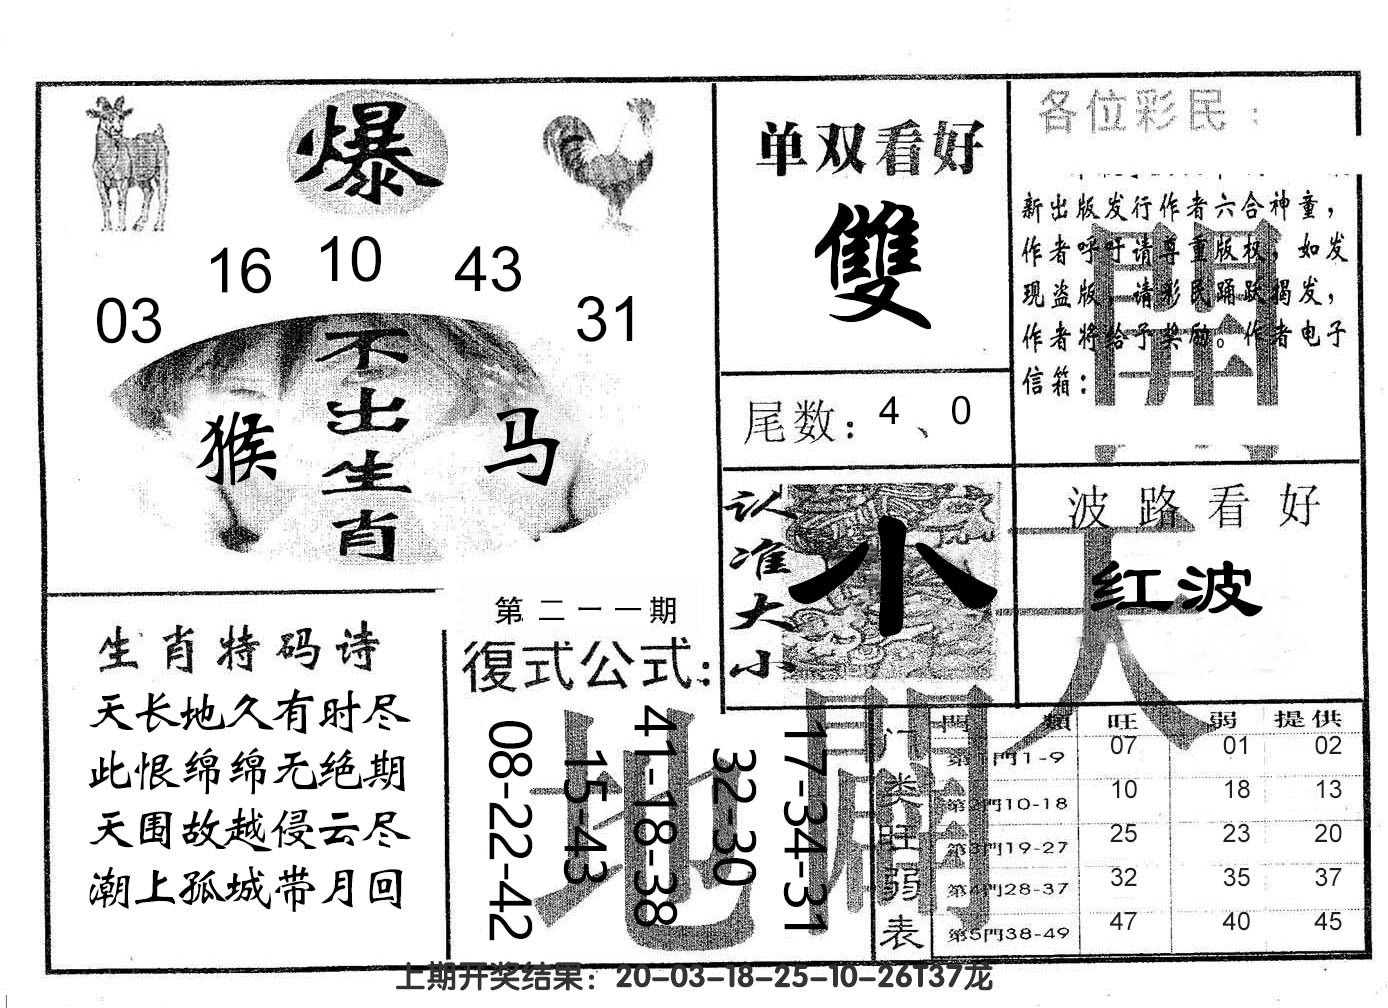 爆
03 16 10 43 31
不出生肖
猴 马
生肖特码诗
天长地久有时尽
此恨绵绵无绝期
天围故越侵云尽
潮上孤城带月回
第二一一期
復式公式：
08-22-42
15-43
41-18-38
32-30
17-34-31
单双看好
雙
尾数：4、0
认准大小
小
各位彩民：
新出版发行作者六合神童，
作者呼吁请尊重版权，如发
现盗版，请彩民踊跃揭发，
作者将给予奖励。作者电子
信箱：
波路看好
红波
開天
地闢
门类旺弱表
門類 旺 弱 提供
第1門1-9 07 01 02
第2門10-18 10 18 13
第3門19-27 25 23 20
第4門28-37 32 35 37
第5門38-49 47 40 45
上期开奖结果：20-03-18-25-10-26T37龙